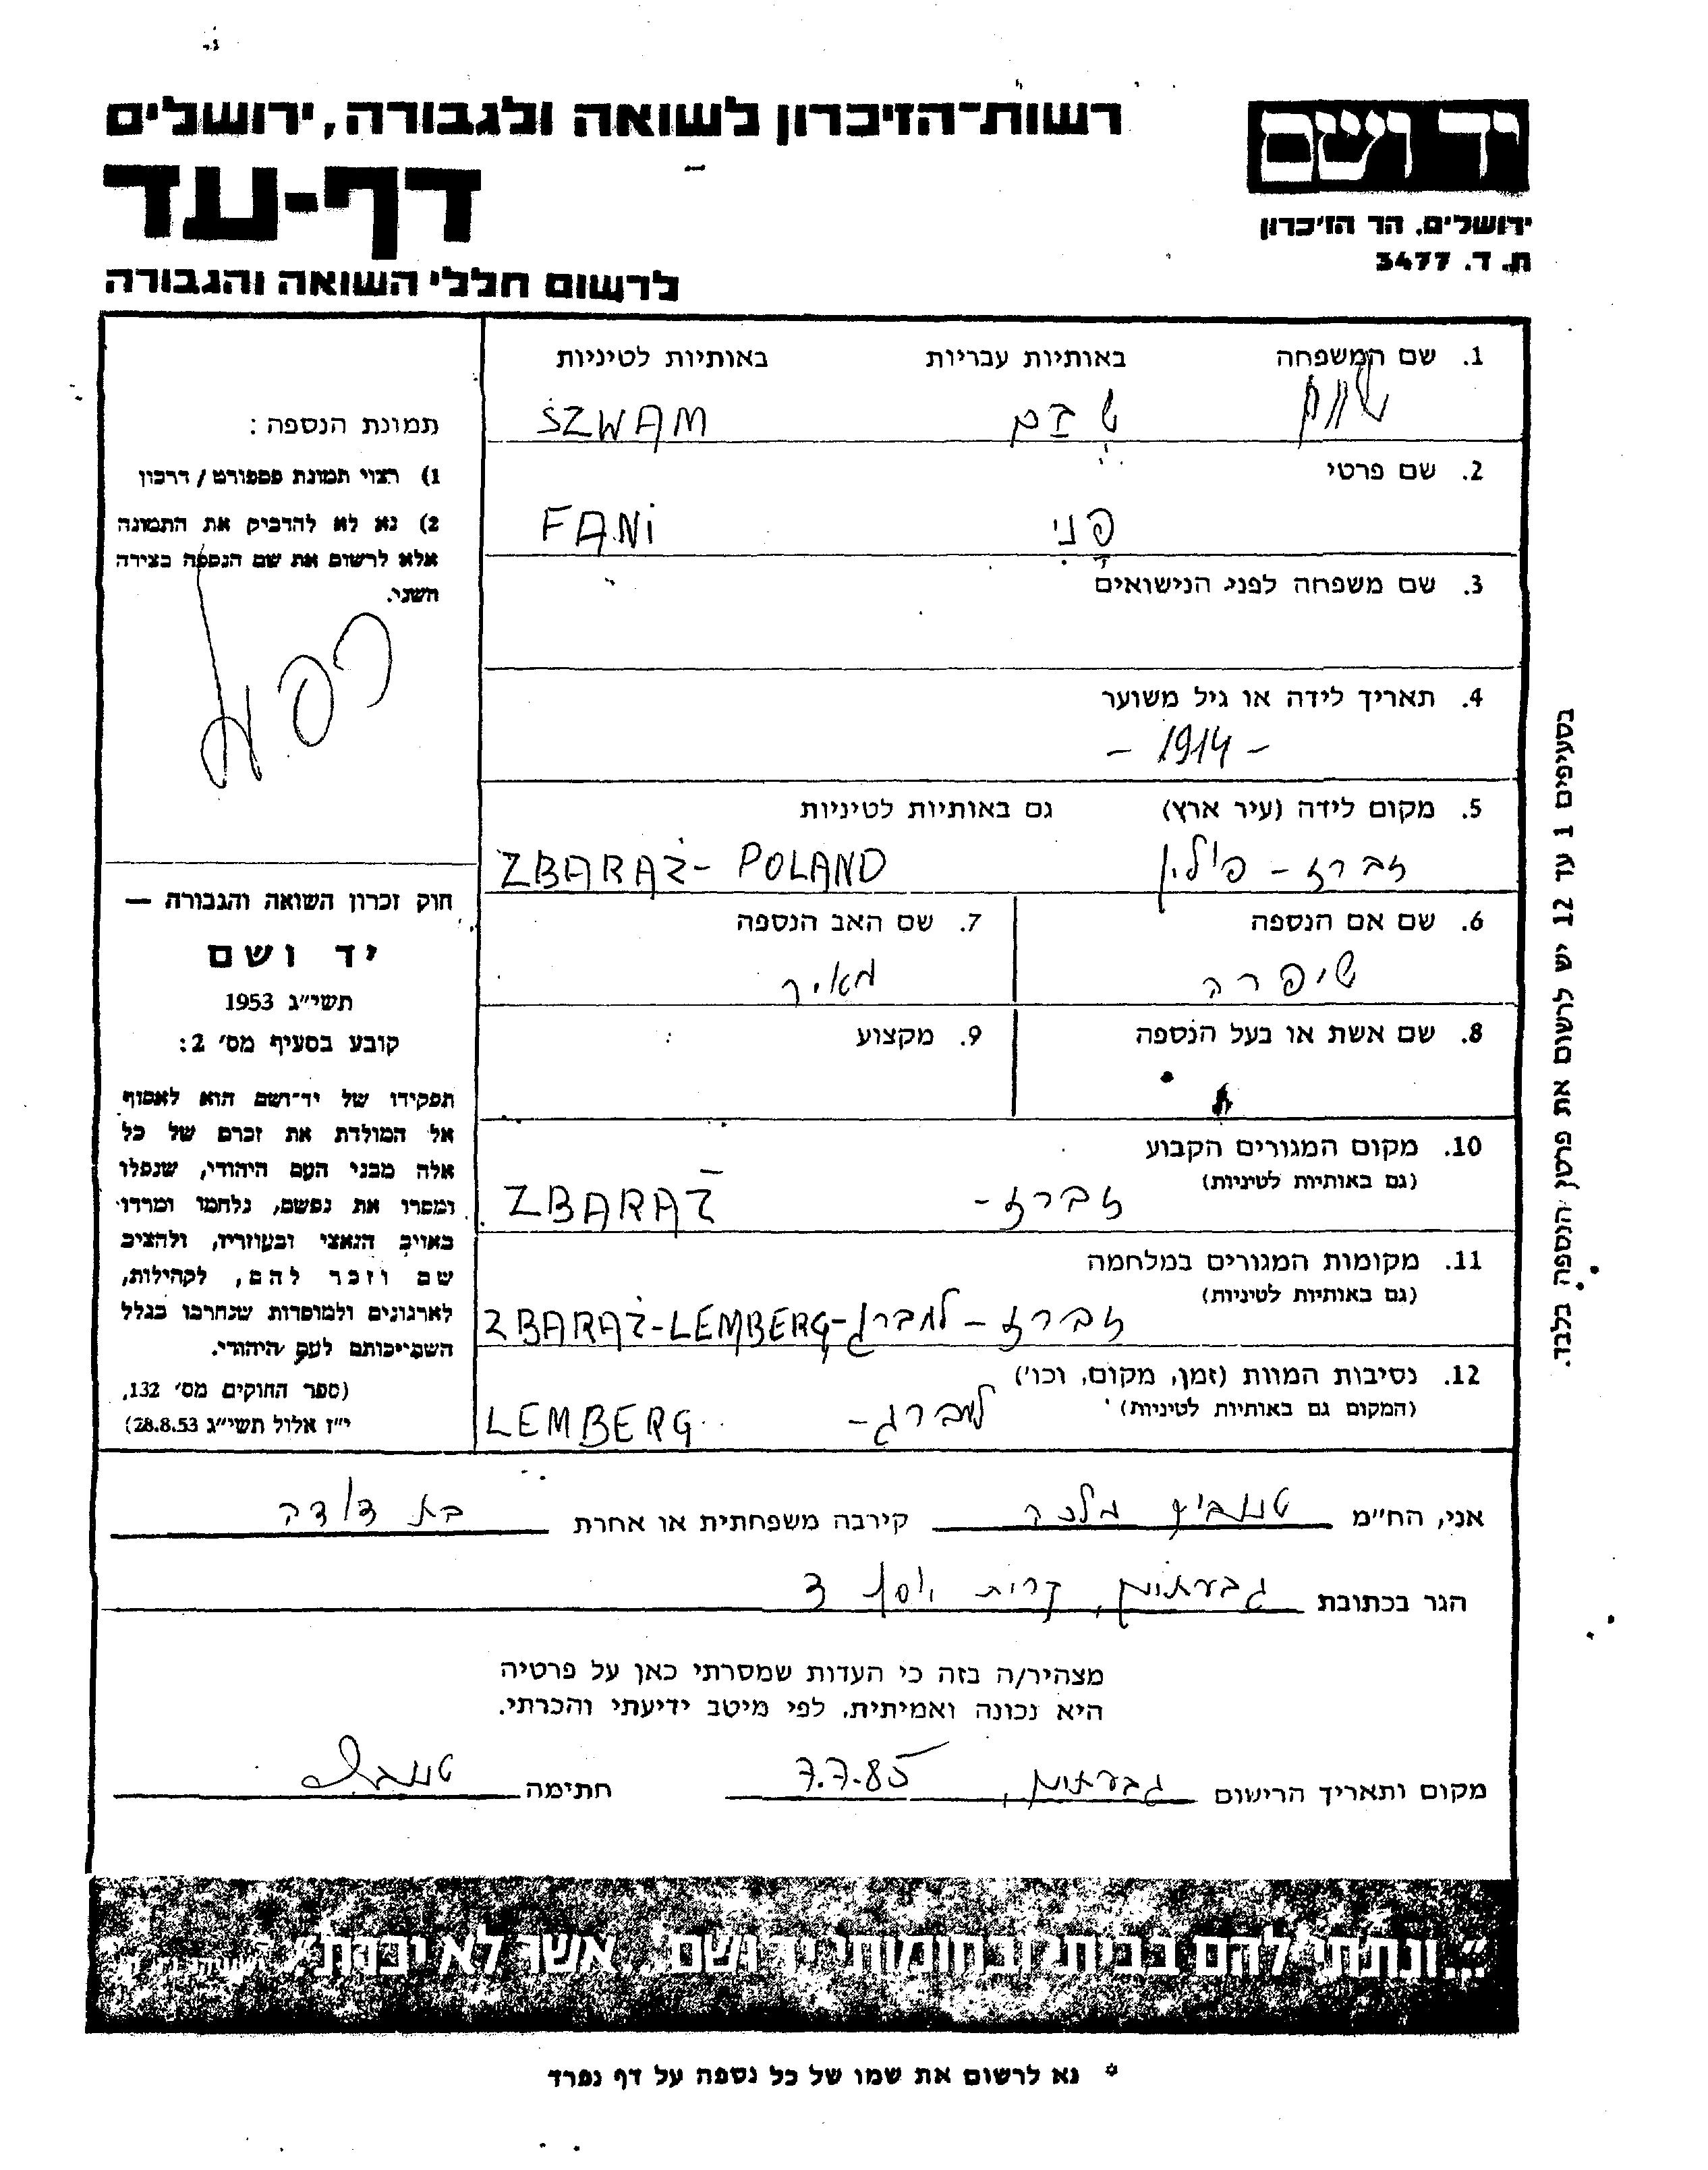 רשות־הזיכרון לשואה ולגבורה, ירושלים
יד ושם
דף-עד
ירושלים, הר הזיכרון
ת. ד. 3477
לרשום חללי השואה והגבורה
1. שם המשפחה באותיות עבריות באותיות לטיניות
שוום SZWAM
2. שם פרטי
פני FANi
3. שם משפחה לפני הנישואים
4. תאריך לידה או גיל משוער
- 1914 -
5. מקום לידה (עיר ארץ) גם באותיות לטיניות
זברז - פולין ZBARAŻ - POLAND
6. שם אם הנספה 7. שם האב הנספה
שיפרה מאיר
8. שם אשת או בעל הנספה 9. מקצוע
10. מקום המגורים הקבוע
(גם באותיות לטיניות)
זברז - ZBARAŻ
11. מקומות המגורים במלחמה
(גם באותיות לטיניות)
זברז - למברג - ZBARAŻ-LEMBERG
12. נסיבות המוות (זמן, מקום, וכו')
(המקום גם באותיות לטיניות)
למברג - LEMBERG
תמונת הנספה:
1) רצוי תמונת פספורט / דרכון
2) נא לא להדביק את התמונה
אלא לרשום את שם הנספה בצידה
השני.
כפול
חוק זכרון השואה והגבורה —
יד ושם
תשי״ג 1953
קובע בסעיף מס׳ 2:
תפקידו של יד־ושם הוא לאסוף
אל המולדת את זכרם של כל
אלה מבני העם היהודי, שנפלו
ומסרו את נפשם, נלחמו ומרדו
באויב הנאצי ובעוזריו, ולהציב
שם וזכר להם, לקהילות,
לארגונים ולמוסדות שנחרבו בגלל
השתייכותם לעם היהודי.
(ספר החוקים מס׳ 132,
י״ז אלול תשי״ג 28.8.53)
בסעיפים 1 עד 12 יש לרשום את פרטי הנספה בלבד.
אני, הח״מ מלכה קירבה משפחתית או אחרת בת דודה
הגר בכתובת גבעתיים, קרית יוסף 3
מצהיר/ה בזה כי העדות שמסרתי כאן על פרטיה
היא נכונה ואמיתית, לפי מיטב ידיעתי והכרתי.
מקום ותאריך הרישום גבעתיים, 7.7.85 חתימה
״...ונתתי להם בביתי ובחומותי יד ושם... אשר לא יכרת״
* נא לרשום את שמו של כל נספה על דף נפרד